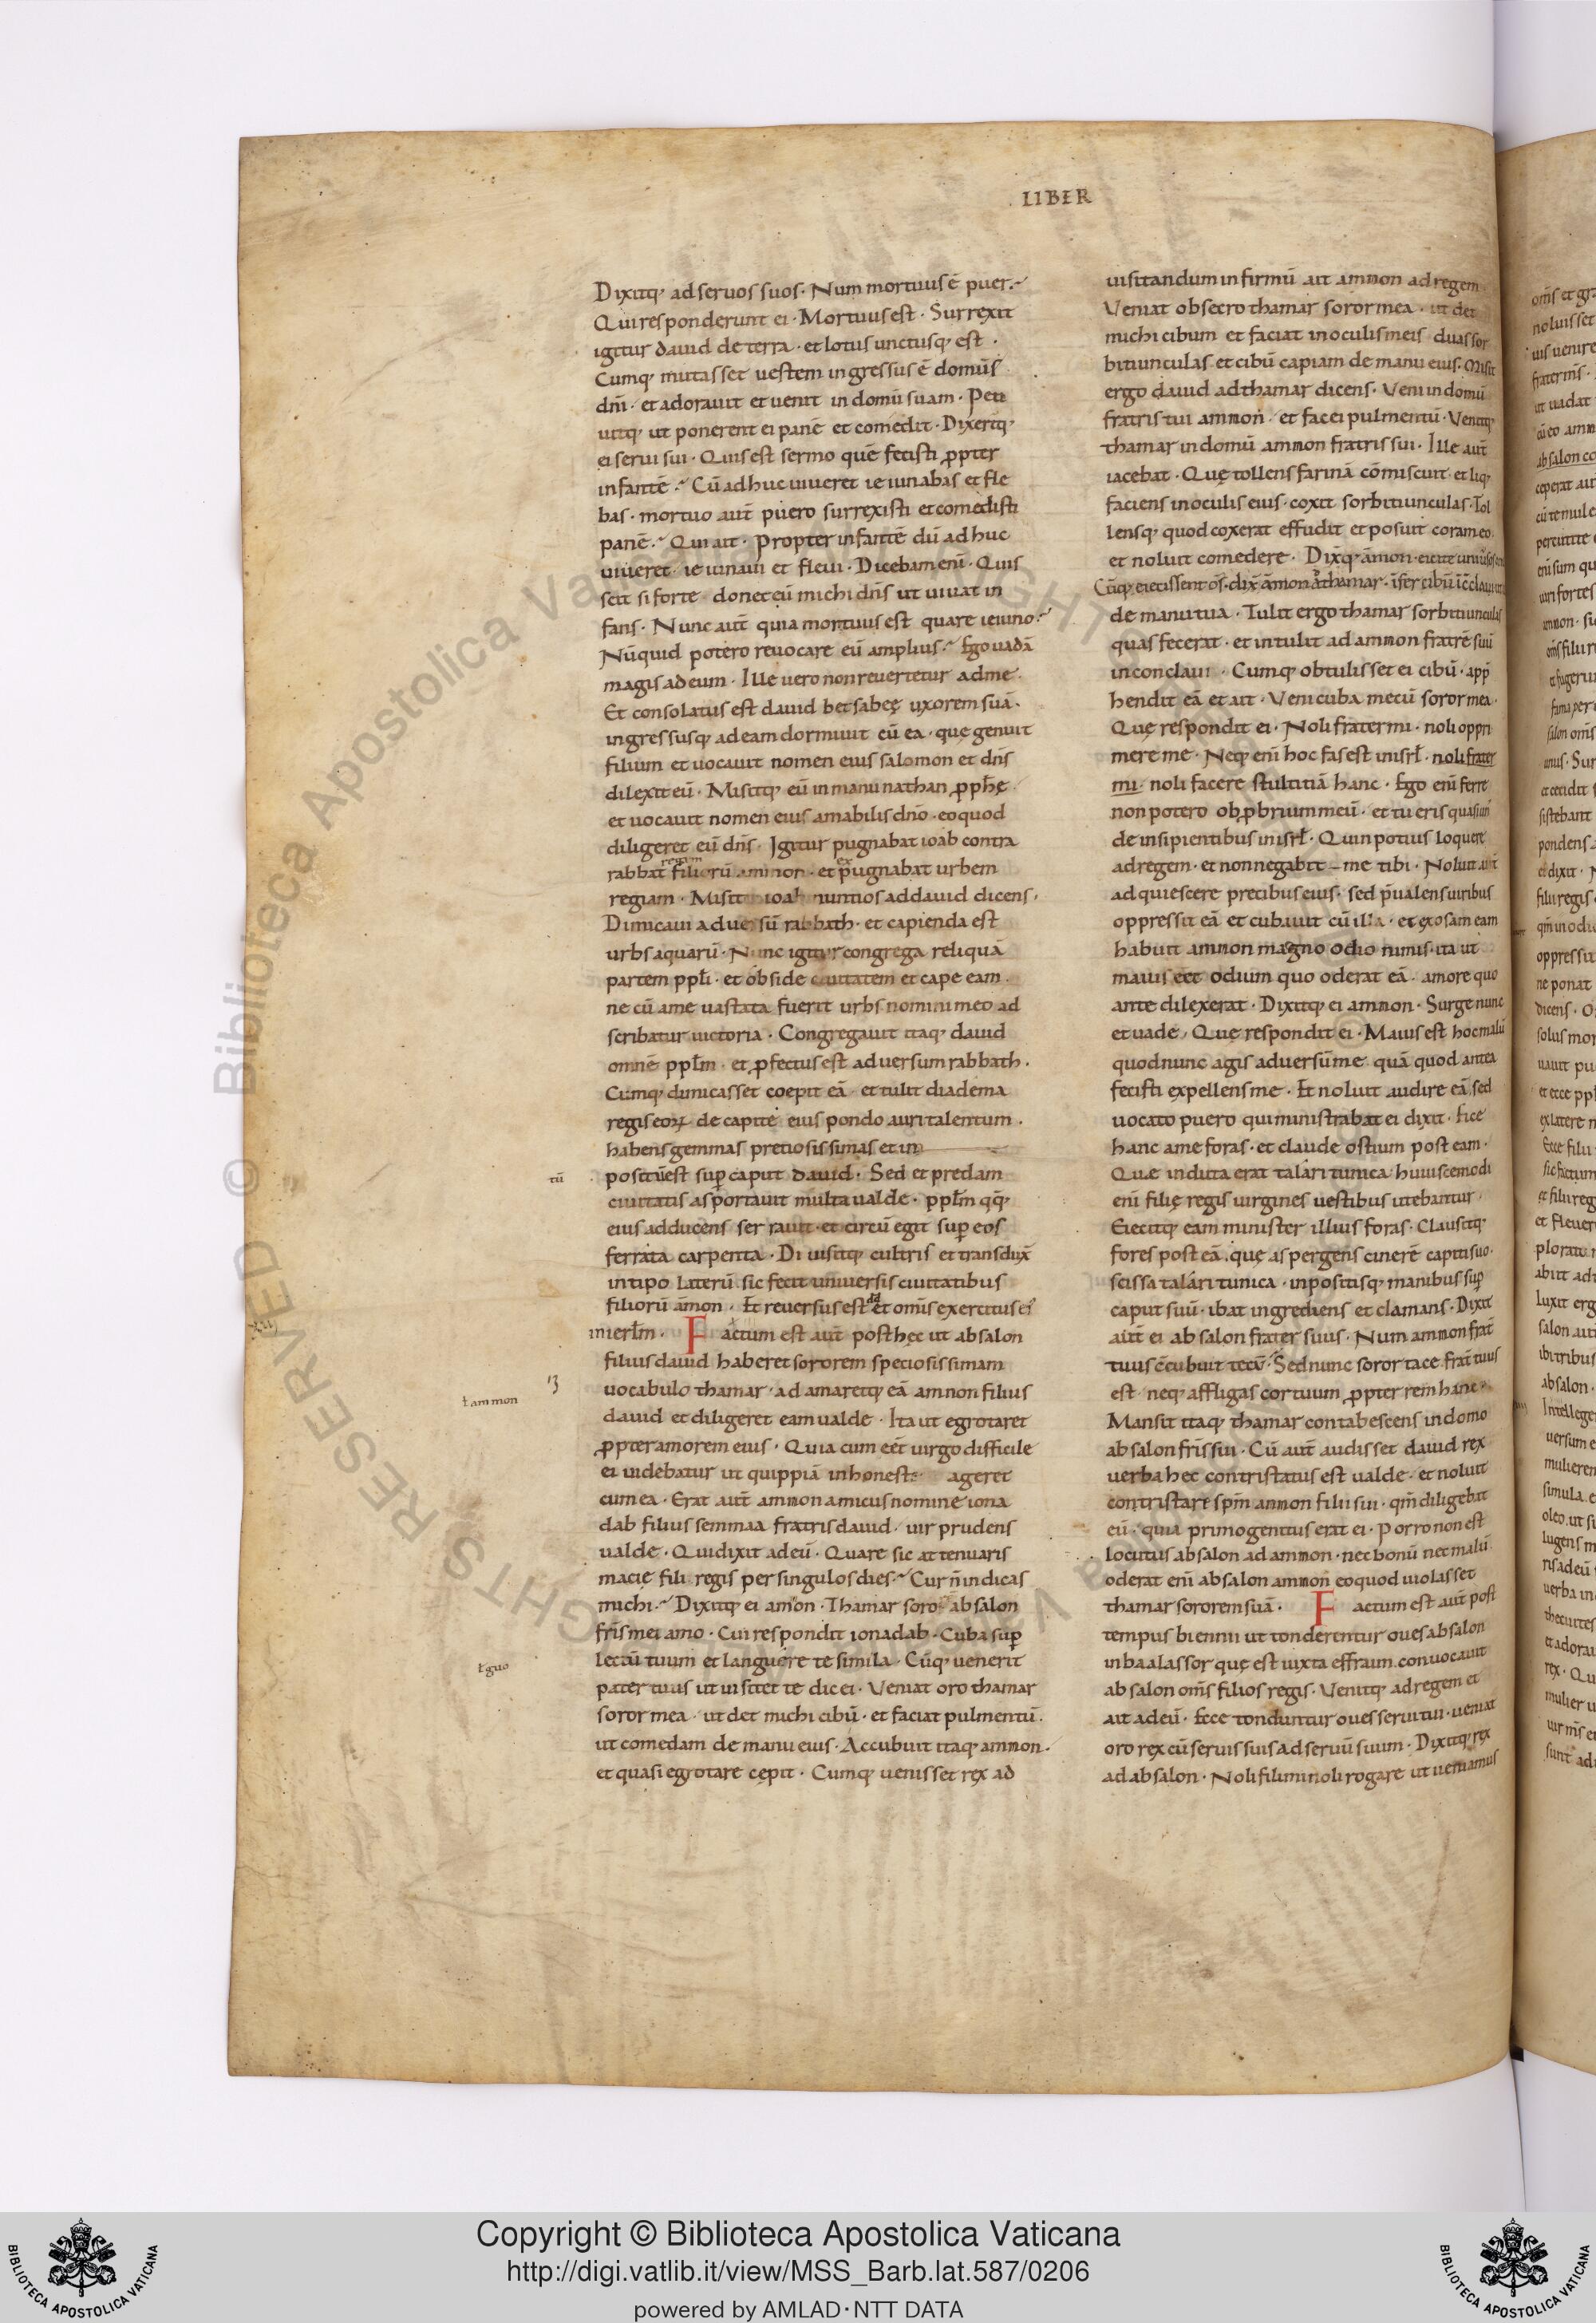 LIBER
Dixitq; ad seruos suos. Num mortuus ē puer.
Qui responderunt ei. Mortuus est. Surrexit
igitur dauid de terra. et lotus unctusq; est.
Cumq; mutasset uestem ingressus ē domūs
dn̄i. et adorauit et uenit in domū suam. Peti
uitq; ut ponerent ei panē et comedit. Dixer̄tq;
ei serui sui. Quis est sermo quē fecisti ꝓpter
infantē. Cū adhuc uiueret ieiunabas et fle
bas. mortuo aut̄ puero surrexisti et comedisti
panē. Qui ait. Propter infantē dū adhuc
uiueret. ieiunaui et fleui. Dicebam eni̅. Quis
scit si forte donet eū michi dn̄s ut uiuat in
fans. Nunc aut̄ quia mortuus est quare ieiuno.
Nūquid potero reuocare eū amplius. Ego uadā
magis ad eum. Ille uero non reuertetur ad me.
Et consolatus est dauid betsabeę uxorem suā.
ingressusq; ad eam dormiuit cū ea. quę genuit
filium et uocauit nomen eius salomon et dn̄s
dilexit eū. Misitq; eū in manu nathan ꝓph̄ę
et uocauit nomen eius amabilis dn̄o. eo quod
diligeret eū dn̄s. Igitur pugnabat ioab contra
rabbat filiorū ammon. et p̄ugnabat urbem
regiam. Misit ioab nuntios ad dauid dicens.
Dimicaui aduersū rabbath. et capienda est
urbs aquarū. Nunc igitur congrega reliquā
partem ppl̄i. et obside ciuitatem et cape eam.
ne cū a me uastata fuerit urbs nomini meo ad
scribatur uictoria. Congregauit itaq; dauid
omnē ppl̄m. et ꝓfectus est aduersum rabbath.
Cumq; dimicasset coepit eā. et tulit diadema
regis eoꝝ de capite eius pondo auri talentum.
habens gemmas pretiosissimas et in
positūest suꝑ caput dauid. Sed et predam
tū
ciuitatis asportauit multa ualde. ppl̄m qq;
eius adducens serrauit. et circū egit suꝑ eos
ferrata carpenta. Diuisitq; cultris et transdux̄
in tipo laterū. sic fecit uniuersis ciuitatibus
filiorū amon. Et reuersus est dd et om̄is exercitus ei'
in ierl̄m. Factum est aut̄ post hęc ut absalon
filius dauid haberet sororem speciosissimam
13
uocabulo thamar. adamaretq; eā amnon filius
ł ammon
dauid et diligeret eam ualde. Ita ut egrotaret
ꝓpter amorem eius. Quia cum eēt uirgo difficile
ei uidebatur ut quippiā inhoneste ageret
cum ea. Erat aut̄ ammon amicus nomine iona
dab filius semmaa fratris dauid. uir prudens
ualde. Qui dixit ad eū. Quare sic attenuaris
macię fili regis per singulos dies. Cur n̄ indicas
michi. Dixitq; ei amon. Thamar soror absalon
fr̄is mei amo. Cui respondit ionadab. Cuba suꝑ
lectū tuum et languore te simila. Cūq; uenerit
pater tuus ut uisitet te dic ei. Veniat oro thamar
soror mea. ut det michi cibū. et faciat pulmentū.
ut comedam de manu eius. Accubuit itaq; ammon.
et quasi egrotare cępit. Cumq; uenisset rex ad
uisitandum infirmū ait ammon ad regem.
Veniat obsecro thamar soror mea. ut det
michi cibum et faciat in oculis meis duas sor
bitiunculas. et cibū capiam de manu eius. Misit
ergo dauid ad thamar dicens. Veni in domū
fratris tui ammon. et fac ei pulmentū. Venitq;
thamar in domū ammon fratris sui. Ille aut̄
iacebat. Quę tollens farinā cōmiscuit. et liq;
faciens in oculis eius. coxit sorbitiunculas. Tol
lensq; quod coxerat effudit et posuit coram eo.
et noluit comedere. Dix̄q; āmon. eicite
Cūq; eiecissent om̄s. dix̄ āmon ad thamar. īfer cibū
de manu tua. Tulit ergo thamar sorbitiunculas
quas fecerat. et intulit ad ammon fratrē suū
in conclaui. Cumq; obtulisset ei cibū. app̄
hendit eā et ait. Veni cuba mecū soror mea.
Quę respondit ei. Noli frater mi. noli oppri
mere me. Neq; eni̅ hoc fas est in isrl̄. noli frater
mi. noli facere stultitiā hanc. Ego eni̅ ferre
non potero obꝓbrium meū. et tu eris quasi un'
de insipientibus in isrl̄. Quin potius loquere
ad regem. et non negabit me tibi. Noluit aut̄
adquiescere precibus eius. sed p̄ualens uiribus
oppressit eā et cubauit cū illa. et exosam eam
habuit ammon magno odio nimis. ita ut
maius eēt odium quo oderat eā. amore quo
ante dilexerat. Dixitq; ei ammon. Surge nunc
et uade. Quę respondit ei. Maius est hoc malū
quod nunc agis aduersū me quā quod antea
fecisti expellens me. Et noluit audire eā. sed
uocato puero qui ministrabat ei dixit. Eice
hanc a me foras. et claude ostium post eam.
Que induta erat talari tunica. huiuscemodi
eni̅ filię regis uirgines uestibus utebantur.
Eiecitq; eam minister illius foras. Clausitq;
fores post eā. quę aspergens cinerē capiti suo.
scissa talari tunica. inpositisq; manibus suꝑ
caput suū. ibat ingrediens et clamans. Dixit
aut̄ ei absalon frater suus. Num ammon frat̄
tuus c̄cubuit tecū. Sed nunc soror tace. frat̄ tuus
est. neq; affligas cor tuum ꝓpter rem hanc.
Mansit itaq; thamar contabescens in domo
absalon fr̄is sui. Cū aut̄ audisset dauid rex
uerba hec contristatus est ualde. et noluit
contristare sp̄m amnon filii sui. qm̄ diligebat
eū. quia primogenitus erat ei. Porro non est
locutus absalon ad ammon. nec bonū nec malū
oderat eni̅ absalon ammon eo quod uiolasset
thamar sororem suā. Factum est aut̄ post
tempus biennii ut tonderentur oues absalon
in baalassor quę est iuxta effraim. conuocauit
absalon om̄s filios regis. Venitq; ad regem et
ait ad eū. Ecce tonduntur oues serui tui. ueniat
oro rex cū seruis suis ad seruū suum. Dixitq; rex
ad absalon. Noli fili mi noli rogare ut ueniamus
Copyright © Biblioteca Apostolica Vaticana
http://digi.vatlib.it/view/MSS_Barb.lat.587/0206
powered by AMLAD·NTT DATA
BIBLIOTECA APOSTOLICA VATICANA
BIBLIOTECA APOSTOLICA VATICANA